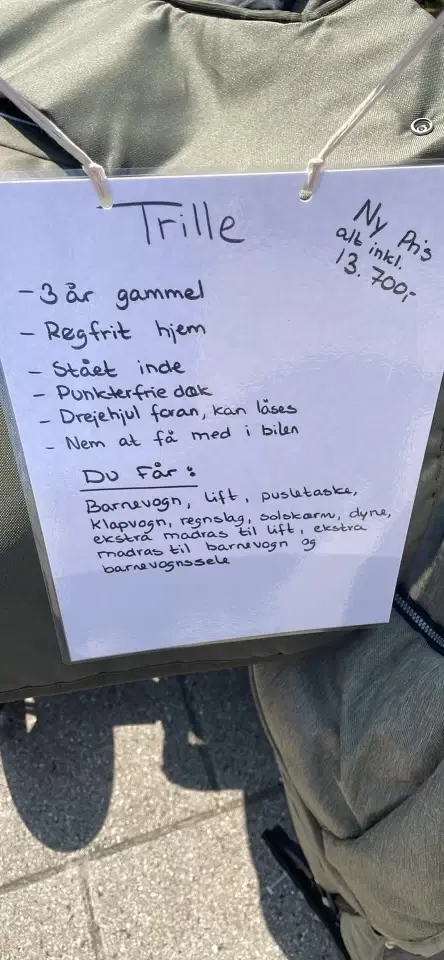 Trille
Ny Pris
alt inkl.
13.700,-
- 3 år gammel
- Røgfrit hjem
- Stået inde
- Punkterfrie dæk
- Drejehjul foran, kan låses
- Nem at få med i bilen
Du Får:
Barnevogn, lift, pusletaske,
klapvogn, regnslag, solskærm, dyne,
ekstra madras til lift, ekstra
madras til barnevogn og
barnevognssele